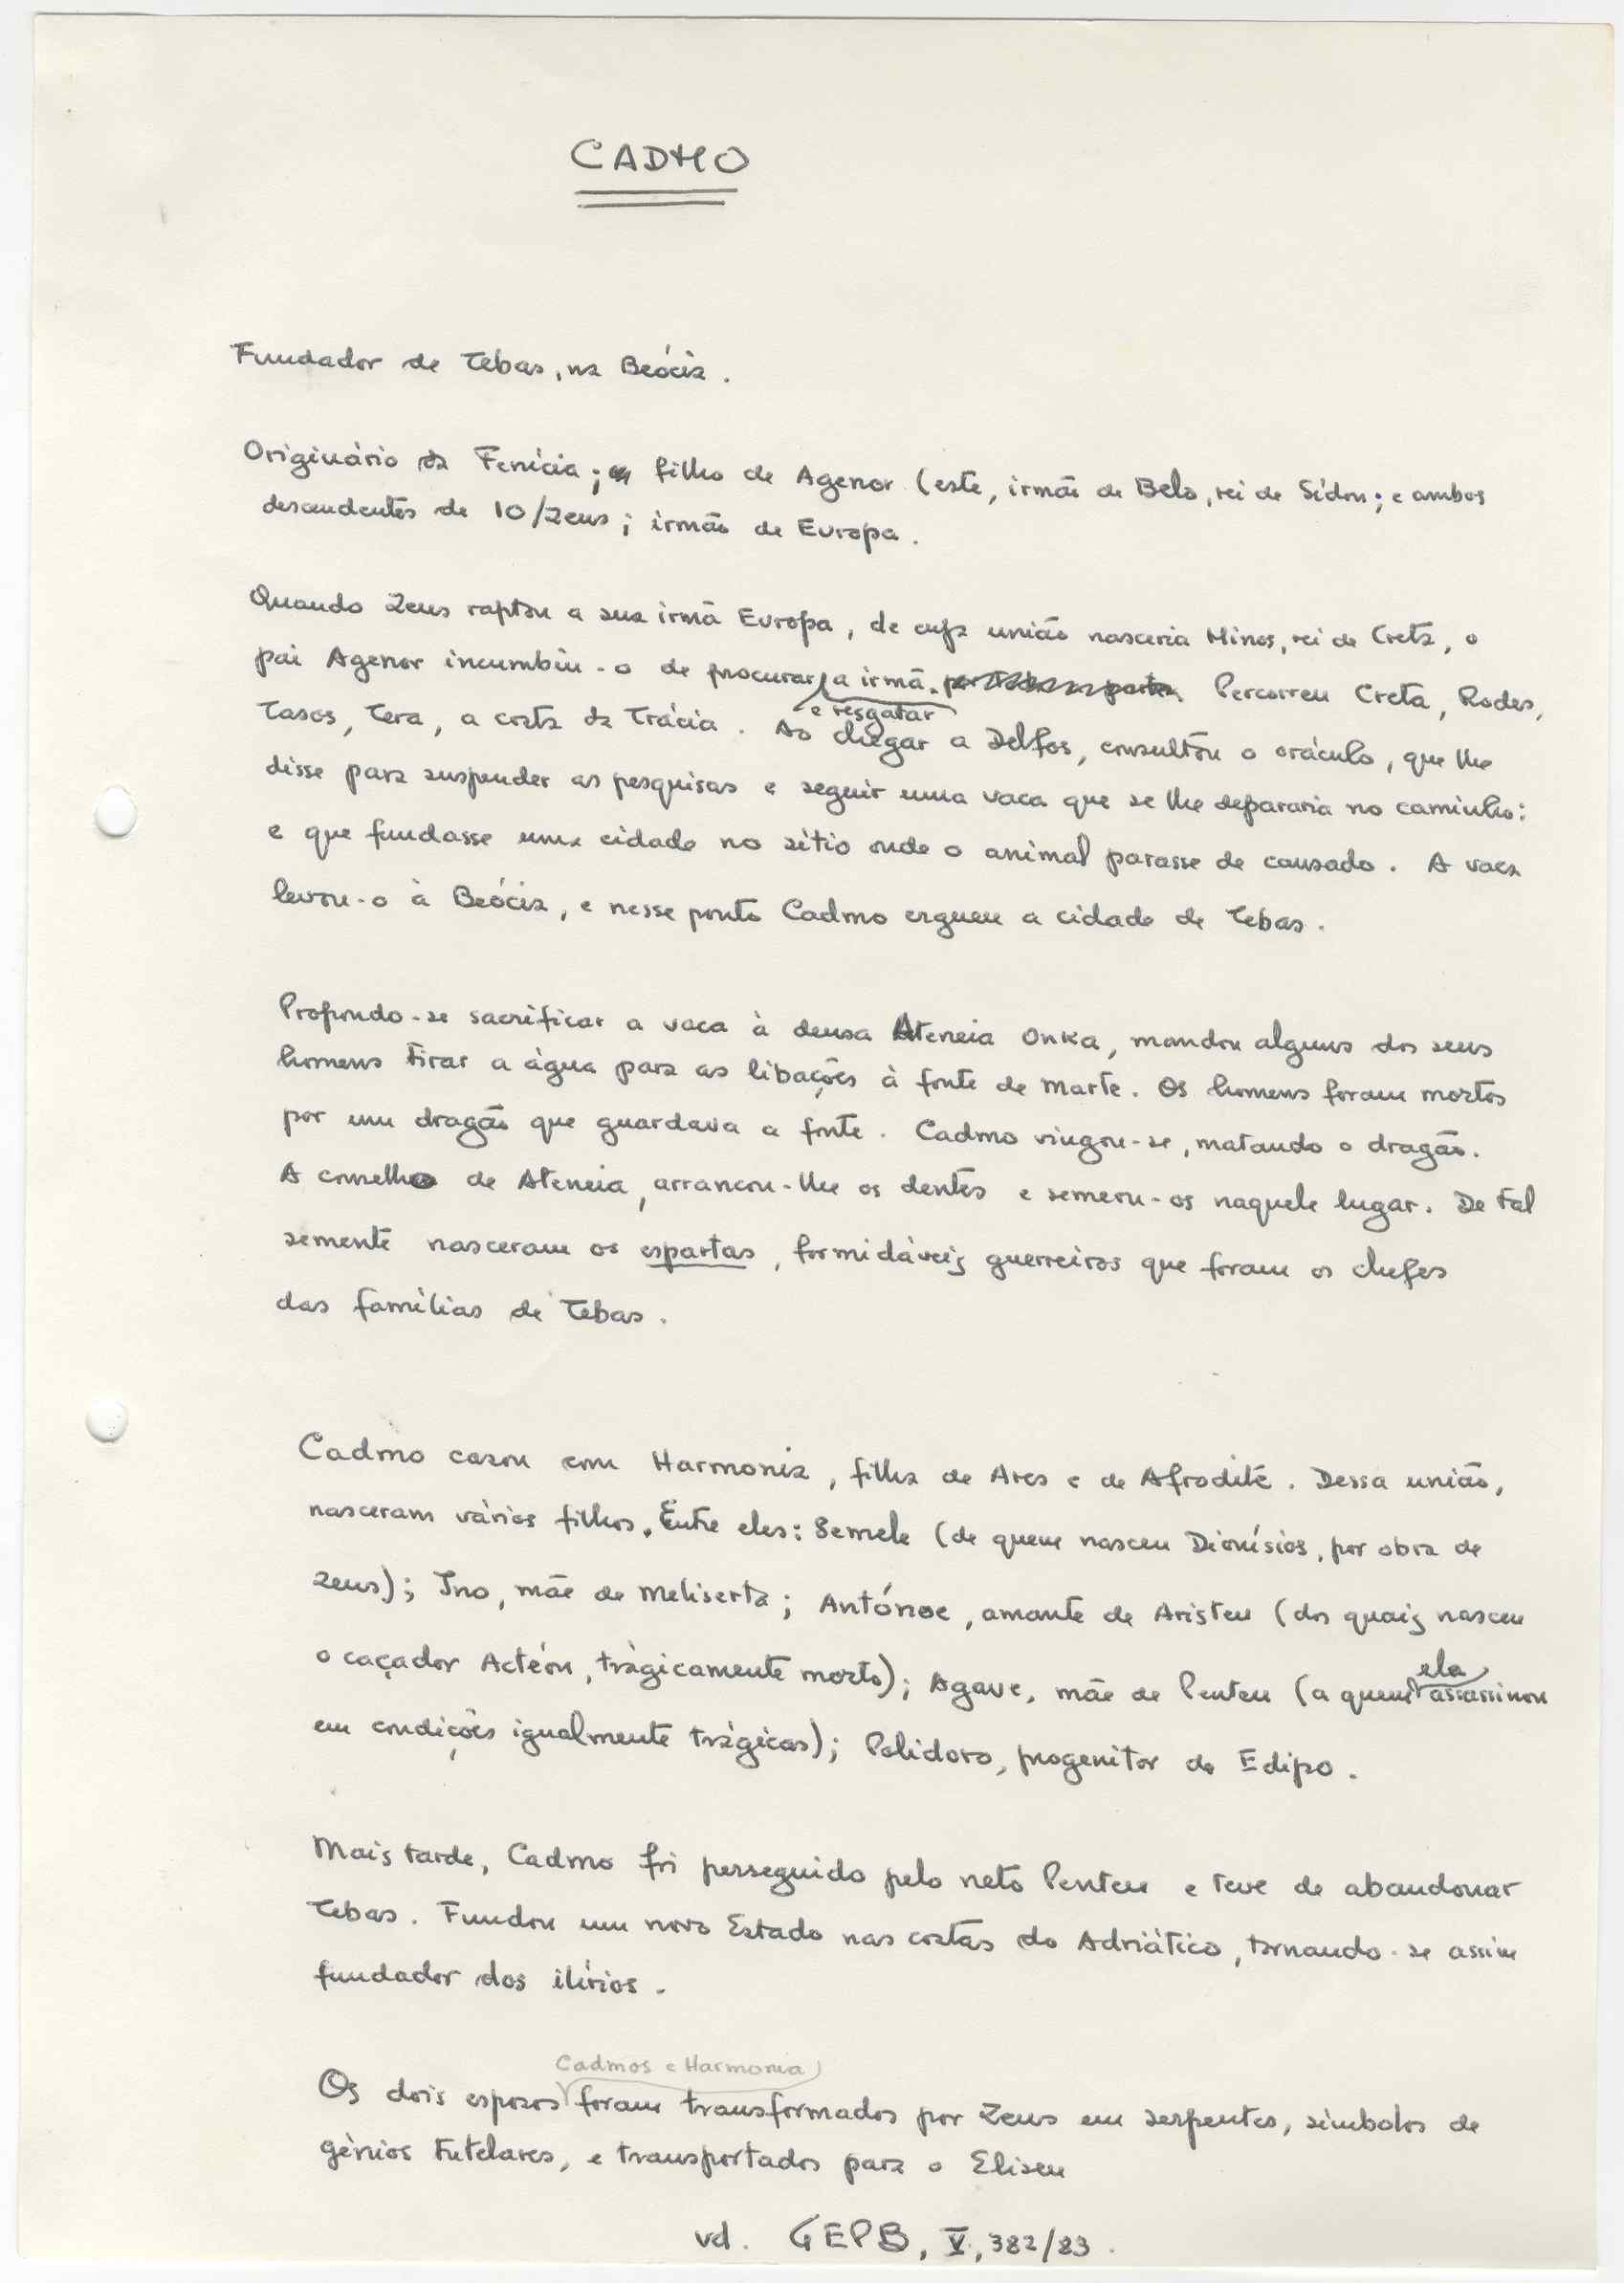 CADMO
Fundador de Tebas, na Beócia.
Originário da Fenícia; filho de Agenor (este, irmão de Belo, rei de Sídon; e ambos
descendentes de IO/Zeus; irmão de Europa.
Quando Zeus raptou a sua irmã Europa, de cuja união nasceria Minos, rei de Creta, o
pai Agenor incumbiu-o de procurar e resgatar a irmã. Percorreu Creta, Rodes,
Tasos, Tera, a costa da Trácia. Ao chegar a Delfos, consultou o oráculo, que lhe
disse para suspender as pesquisas e seguir uma vaca que se lhe depararia no caminho:
e que fundasse uma cidade no sítio onde o animal parasse de cansado. A vaca
levou-o à Beócia, e nesse ponto Cadmo ergueu a cidade de Tebas.
Propondo-se sacrificar a vaca à deusa Ateneia Onka, mandou alguns dos seus
homens tirar a água para as libações à fonte de Marte. Os homens foram mortos
por um dragão que guardava a fonte. Cadmo vingou-se, matando o dragão.
A conselho de Ateneia, arrancou-lhe os dentes e semeou-os naquele lugar. De tal
semente nasceram os espartas, formidáveis guerreiros que foram os chefes
das famílias de Tebas.
Cadmo casou com Harmonia, filha de Ares e de Afrodite. Dessa união,
nasceram vários filhos. Entre eles: Semele (de quem nasceu Dionísios, por obra de
Zeus); Ino, mãe de Meliserta; Antónoe, amante de Aristeu (dos quais nasceu
o caçador Actéon, tràgicamente morto); Agave, mãe de Penteu (a quem ela assassinou
em condições igualmente trágicas); Polidoro, progenitor de Edipo.
Mais tarde, Cadmo foi perseguido pelo neto Penteu e teve de abandonar
Tebas. Fundou um novo Estado nas costas do Adriático, tornando-se assim
fundador dos ilírios.
Os dois esposos Cadmos e Harmonia foram transformados por Zeus em serpentes, símbolos de
génios tutelares, e transportados para o Eliseu
vd. GEPB, V, 382/83.